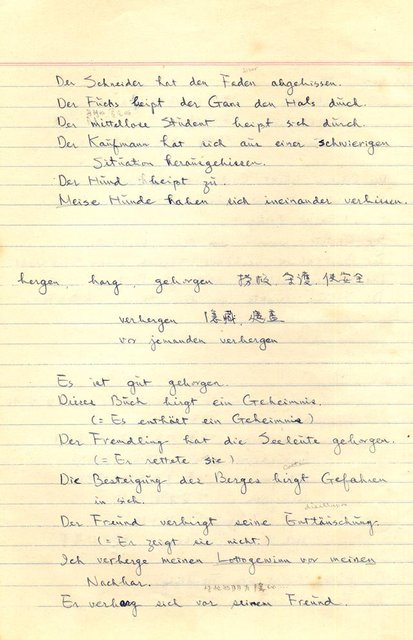 Der Schneider hat den Faden abgebissen.
Der Fuchs beißt der Gans den Hals durch.
Der mittellose Student beißt sich durch.
Der Kaufmann hat sich aus einer schwierigen
Situation herausgebissen.
Der Hund beißt zu.
Meise Hunde haben sich ineinander verbissen.
bergen, barg, geborgen 保安全
verbergen
vor jemanden verbergen
Es ist gut geborgen.
Dieses Buch birgt ein Geheimnis.
(= Es enthält ein Geheimnis)
Der Fremdling hat die Seeleute geborgen.
(= Er rettete sie)
Die Besteigung des Berges birgt Gefahren
in sich.
Der Freund verbirgt seine Enttäuschung.
(= Er zeigt sie nicht.)
Ich verberge meinen Lotogewinn vor meinen
Nachbar.
Er verbarg sich vor seinem Freund.